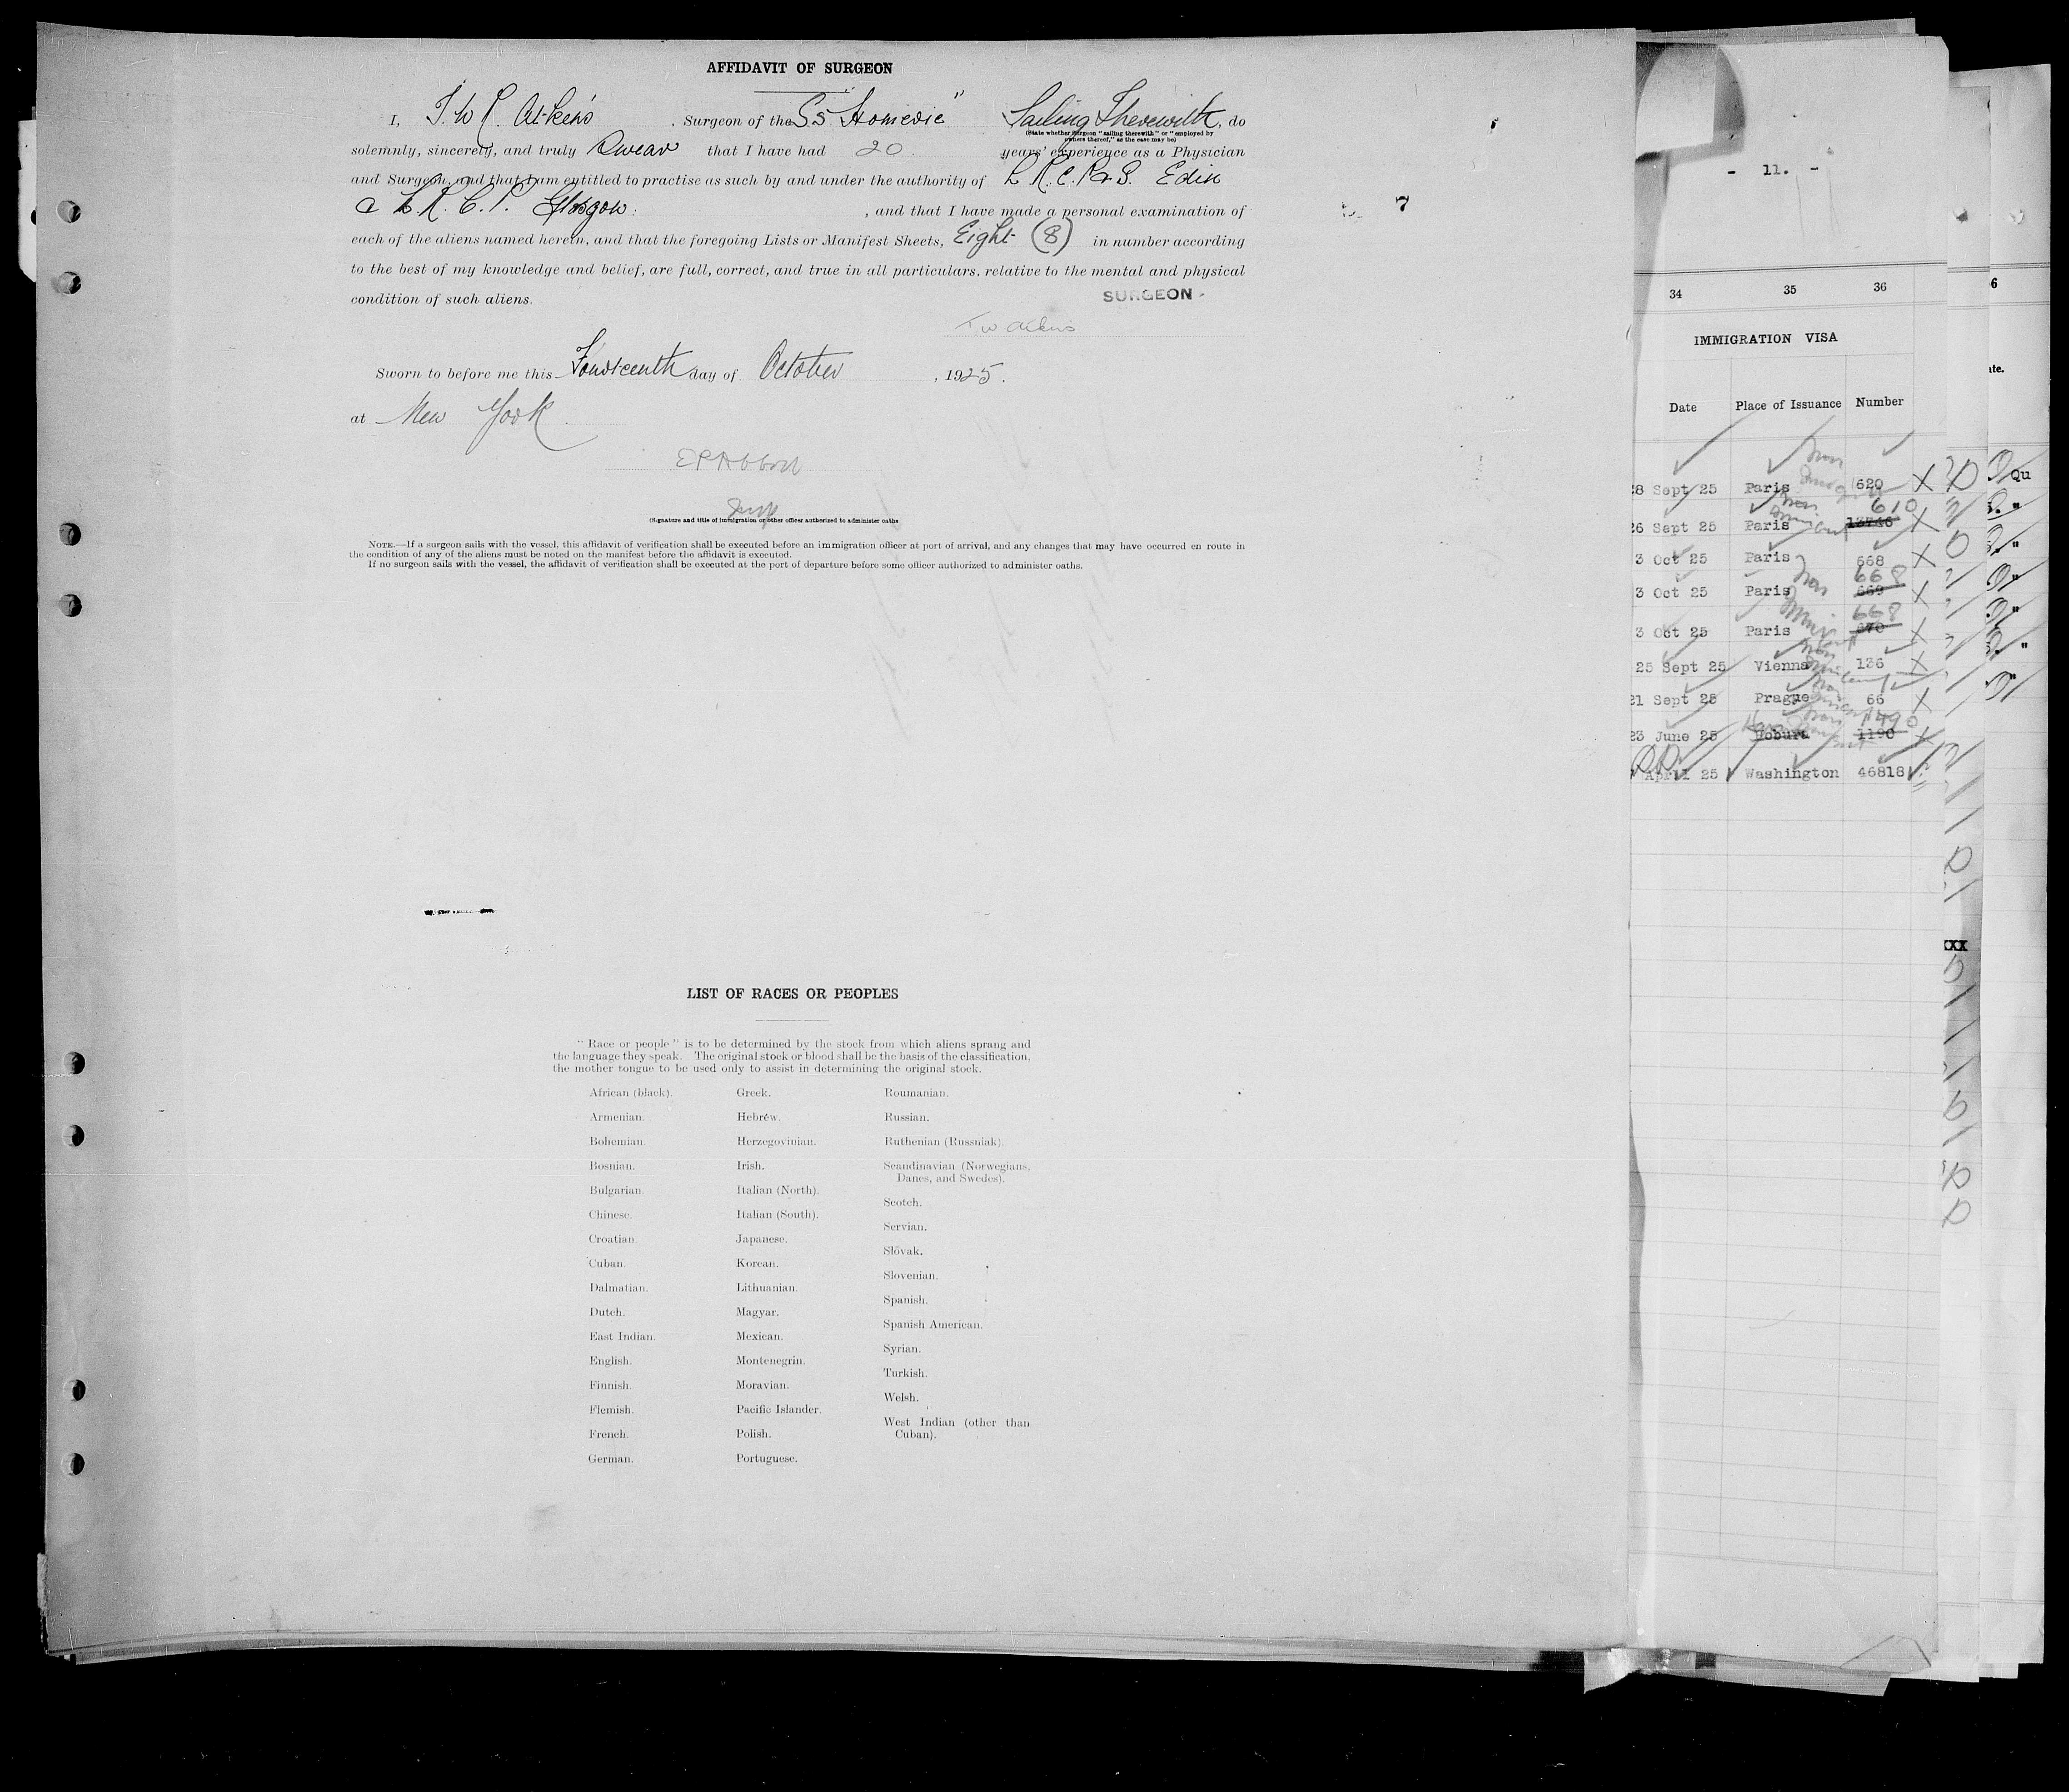 AFFIDAVIT OF SURGEON
I, T. W. R. Atkens, Surgeon of the SS Homeric" Sailing Therewith, do
(State whether Surgeon "sailing therewith" or "employed by
owners thereof," as the case may be)
solemnly, sincerely, and truly Swear that I have had 20 years' experience as a Physician
and Surgeon, and that I am entitled to practise as such by and under the authority of L R. C. P & S. Edin
& L. R. C. P. Glasgow: , and that I have made a personal examination of
each of the aliens named herein, and that the foregoing Lists or Manifest Sheets, Eight (8) in number according
to the best of my knowledge and belief, are full, correct, and true in all particulars, relative to the mental and physical
condition of such aliens.
SURGEON
Sworn to before me this Fourteenth day of October, 1925.
at New York
Insp
(Signature and title of immigration or other officer authorized to administer oaths
NOTE.—If a surgeon sails with the vessel, this affidavit of verification shall be executed before an immigration officer at port of arrival, and any changes that may have occurred en route in
the condition of any of the aliens must be noted on the manifest before the affidavit is executed.
If no surgeon sails with the vessel, the affidavit of verification shall be executed at the port of departure before some officer authorized to administer oaths.
7
LIST OF RACES OR PEOPLES
"Race or people" is to be determined by the stock from which aliens sprang and
the language they speak. The original stock or blood shall be the basis of the classification,
the mother tongue to be used only to assist in determining the original stock.
African (black).
Armenian.
Bohemian.
Bosnian.
Bulgarian.
Chinese.
Croatian.
Cuban.
Dalmatian.
Dutch.
East Indian.
English.
Finnish.
Flemish.
French.
German.
Greek.
Hebrew.
Herzegovinian.
Irish.
Italian (North).
Italian (South).
Japanese.
Korean.
Lithuanian.
Magyar.
Mexican.
Montenegrin.
Moravian.
Pacific Islander.
Polish.
Portuguese.
Roumanian.
Russian.
Ruthenian (Russniak).
Scandinavian (Norwegians,
Danes, and Swedes).
Scotch.
Servian.
Slovak.
Slovenian.
Spanish.
Spanish American.
Syrian.
Turkish.
Welsh.
West Indian (other than
Cuban).
- 11. -
34 35 36
IMMIGRATION VISA
Date Place of Issuance Number
28 Sept 25 Paris 620
610
26 Sept 25 Paris
3 Oct 25 Paris 668
668
3 Oct 25 Paris 669
668
3 Oct 25 Paris 670
25 Sept 25 Vienna 136
21 Sept 25 Prague 66
1490
23 June 25 1190
April 25 Washington 46818
6
ate.
Qu
XXX